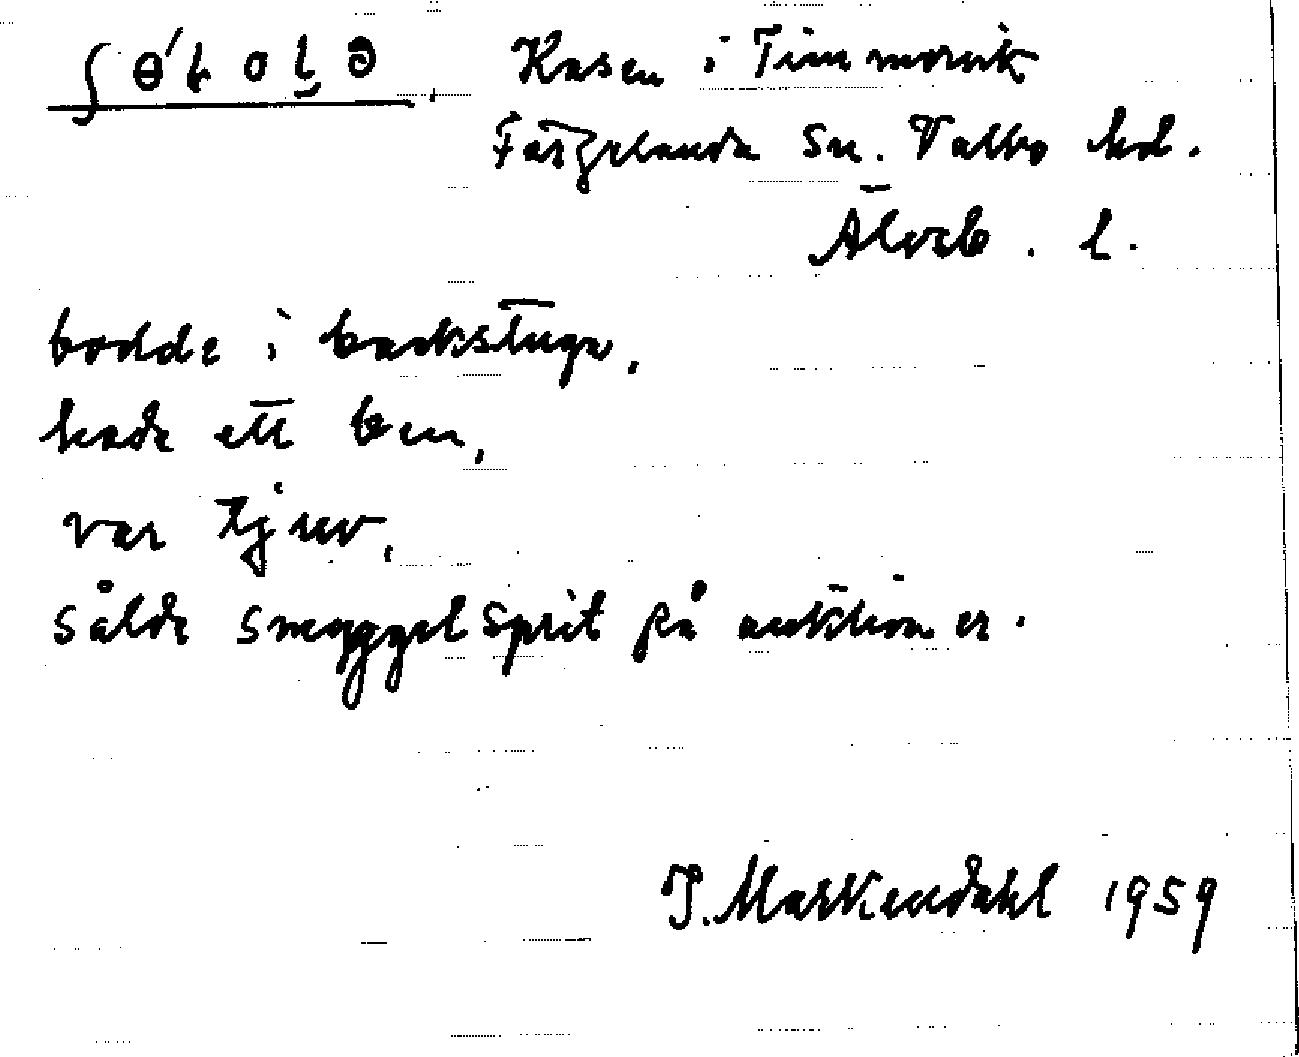 ʃɵ́ƚoʅə. Kasen i Timmervik
Färgelanda sn. Valbo hd.
Älvsb. l.
bodde i backstuga,
hade ett ben,
var tjuv,
sålde smuggelsprit på auktioner.
J. Markendahl 1959